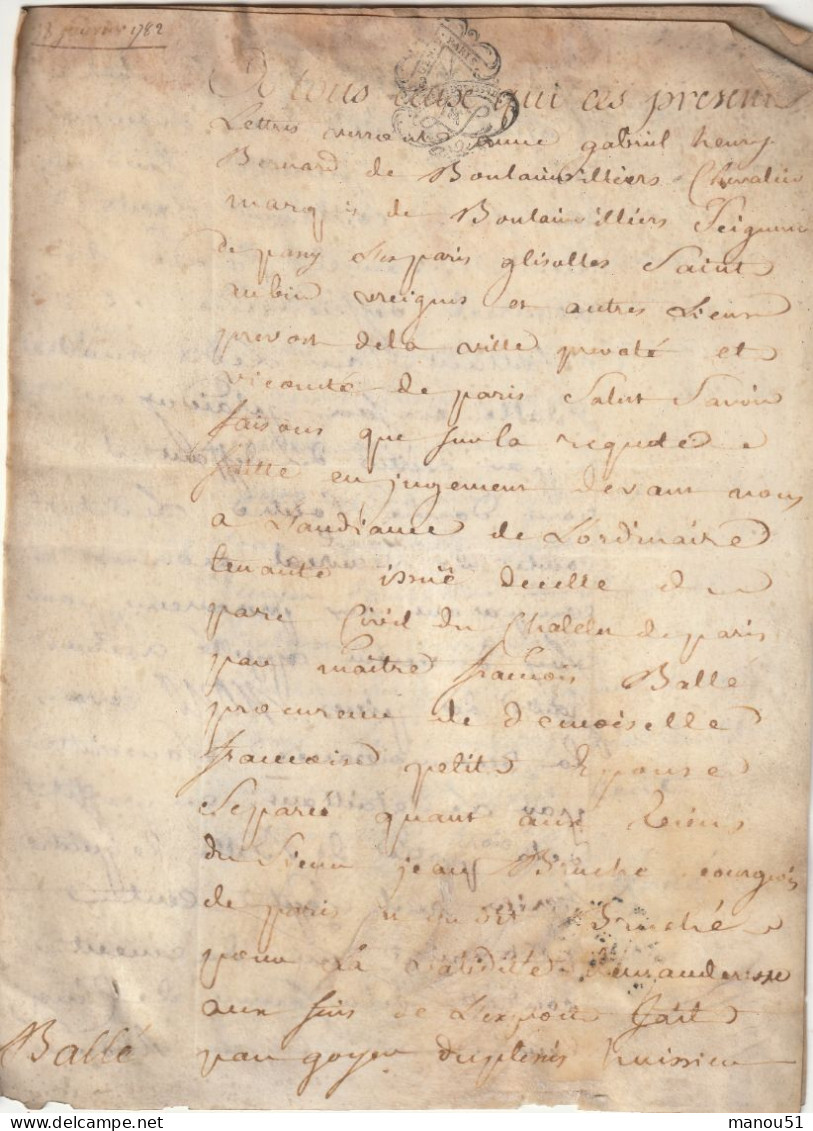 18 janvier 1782
A tous ceux qui ces presentes
Lettres verront anne gabriel henry
Bernard de Boulainvilliers Chevalier
marquis de Boulainvilliers Seigneur
de passy Les paris glisolles Saint
aubin et autres Lieux
prevost de la ville prevoté et
vicomté de paris Salut Savoir
faisons que sur la requete
faitte en jugement devant nous
a Laudiance de Lordinaire
tenante issue decelle du
parc Civil du Chatelet de paris
par maitre francois Ballé
procureur de demoiselle
francoise petit Epouse
Separée quant aux biens
du Sieur jean Bruché bourgeois
de paris du dit Sr Bruché
pour la validité demanderesse
aux fins de Lexploit fait
par goyer duplessis huissier
Ballé
manou51